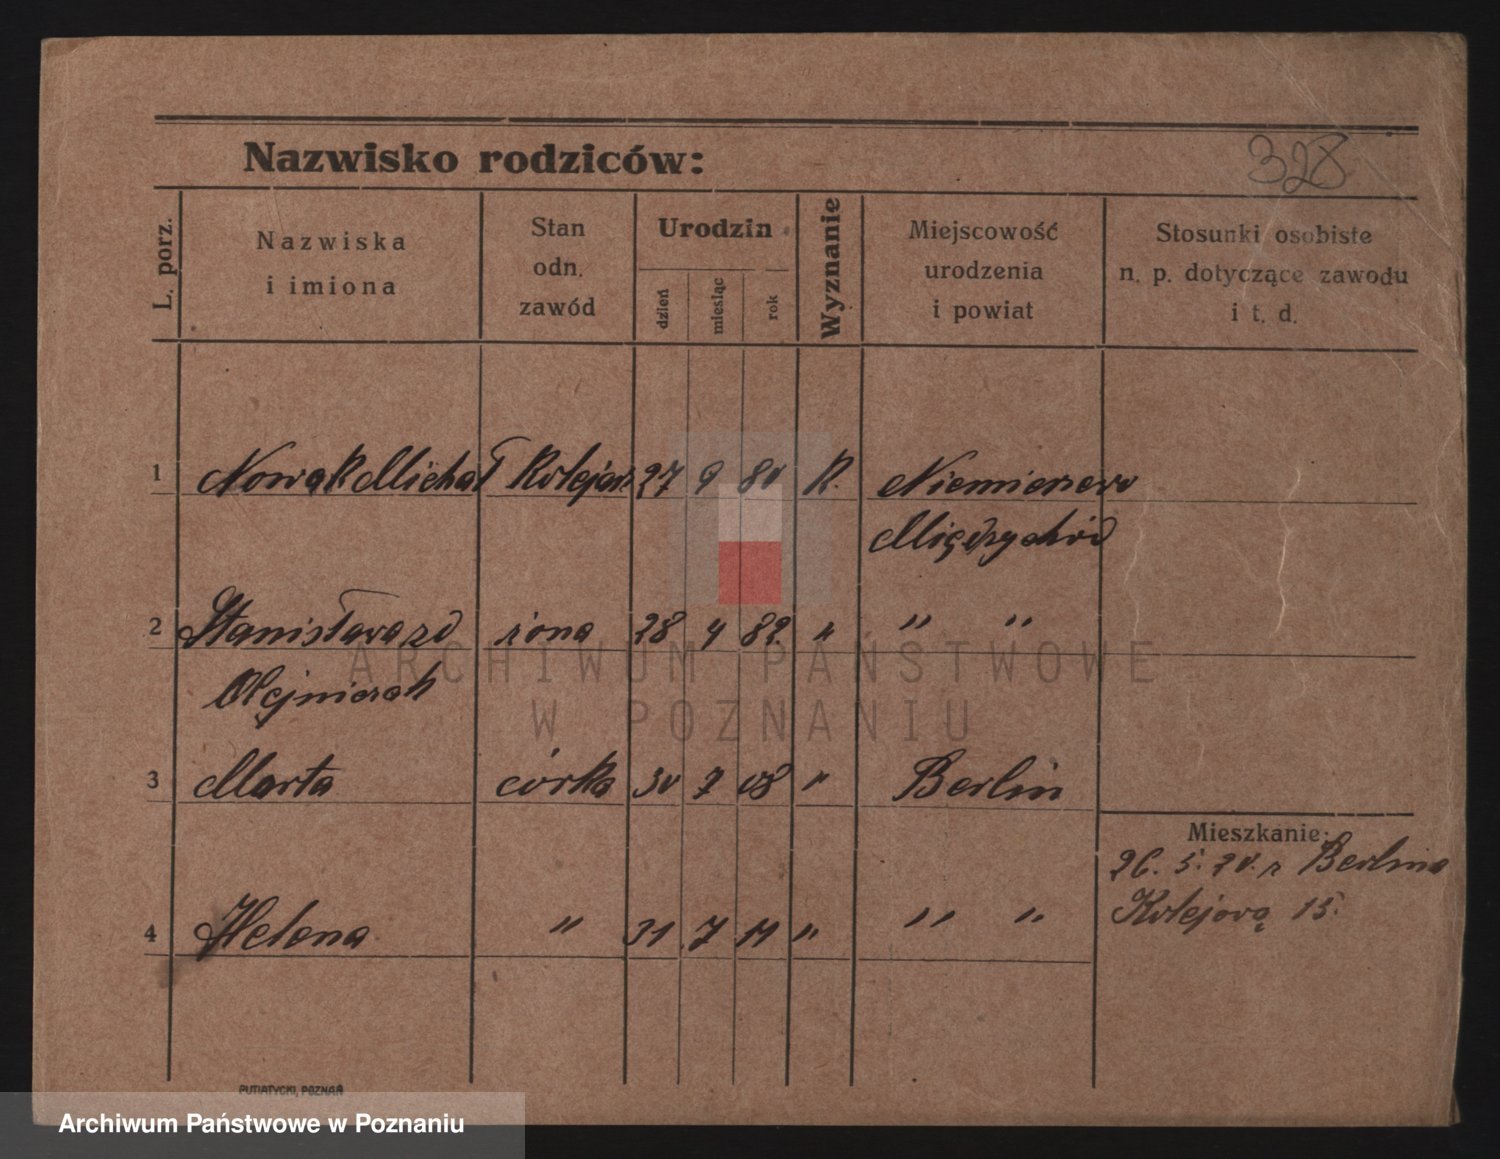 Nazwisko rodziców:
328
L. porz.
Nazwiska
i imiona
Stan
odn.
zawód
Urodzin
dzień
miesiąc
rok
Wyznanie
Miejscowość
urodzenia
i powiat
Stosunki osobiste
n. p. dotyczące zawodu
i t. d.
1 Nowak Michał Kolejarz 27 9 80 R.
Międzychód
2 Stanisława zd żona 28 4 82 " " "
Olejniczak
3 Marta córka 30 7 08 " Berlin
Mieszkanie:
26. 5. 20. z Berlina
Kolejową 15.
4 Helena " 31 7 11 " " "
PUTIATYCKI, POZNAŃ
ARCHIWUM PAŃSTWOWE
W POZNANIU
Archiwum Państwowe w Poznaniu